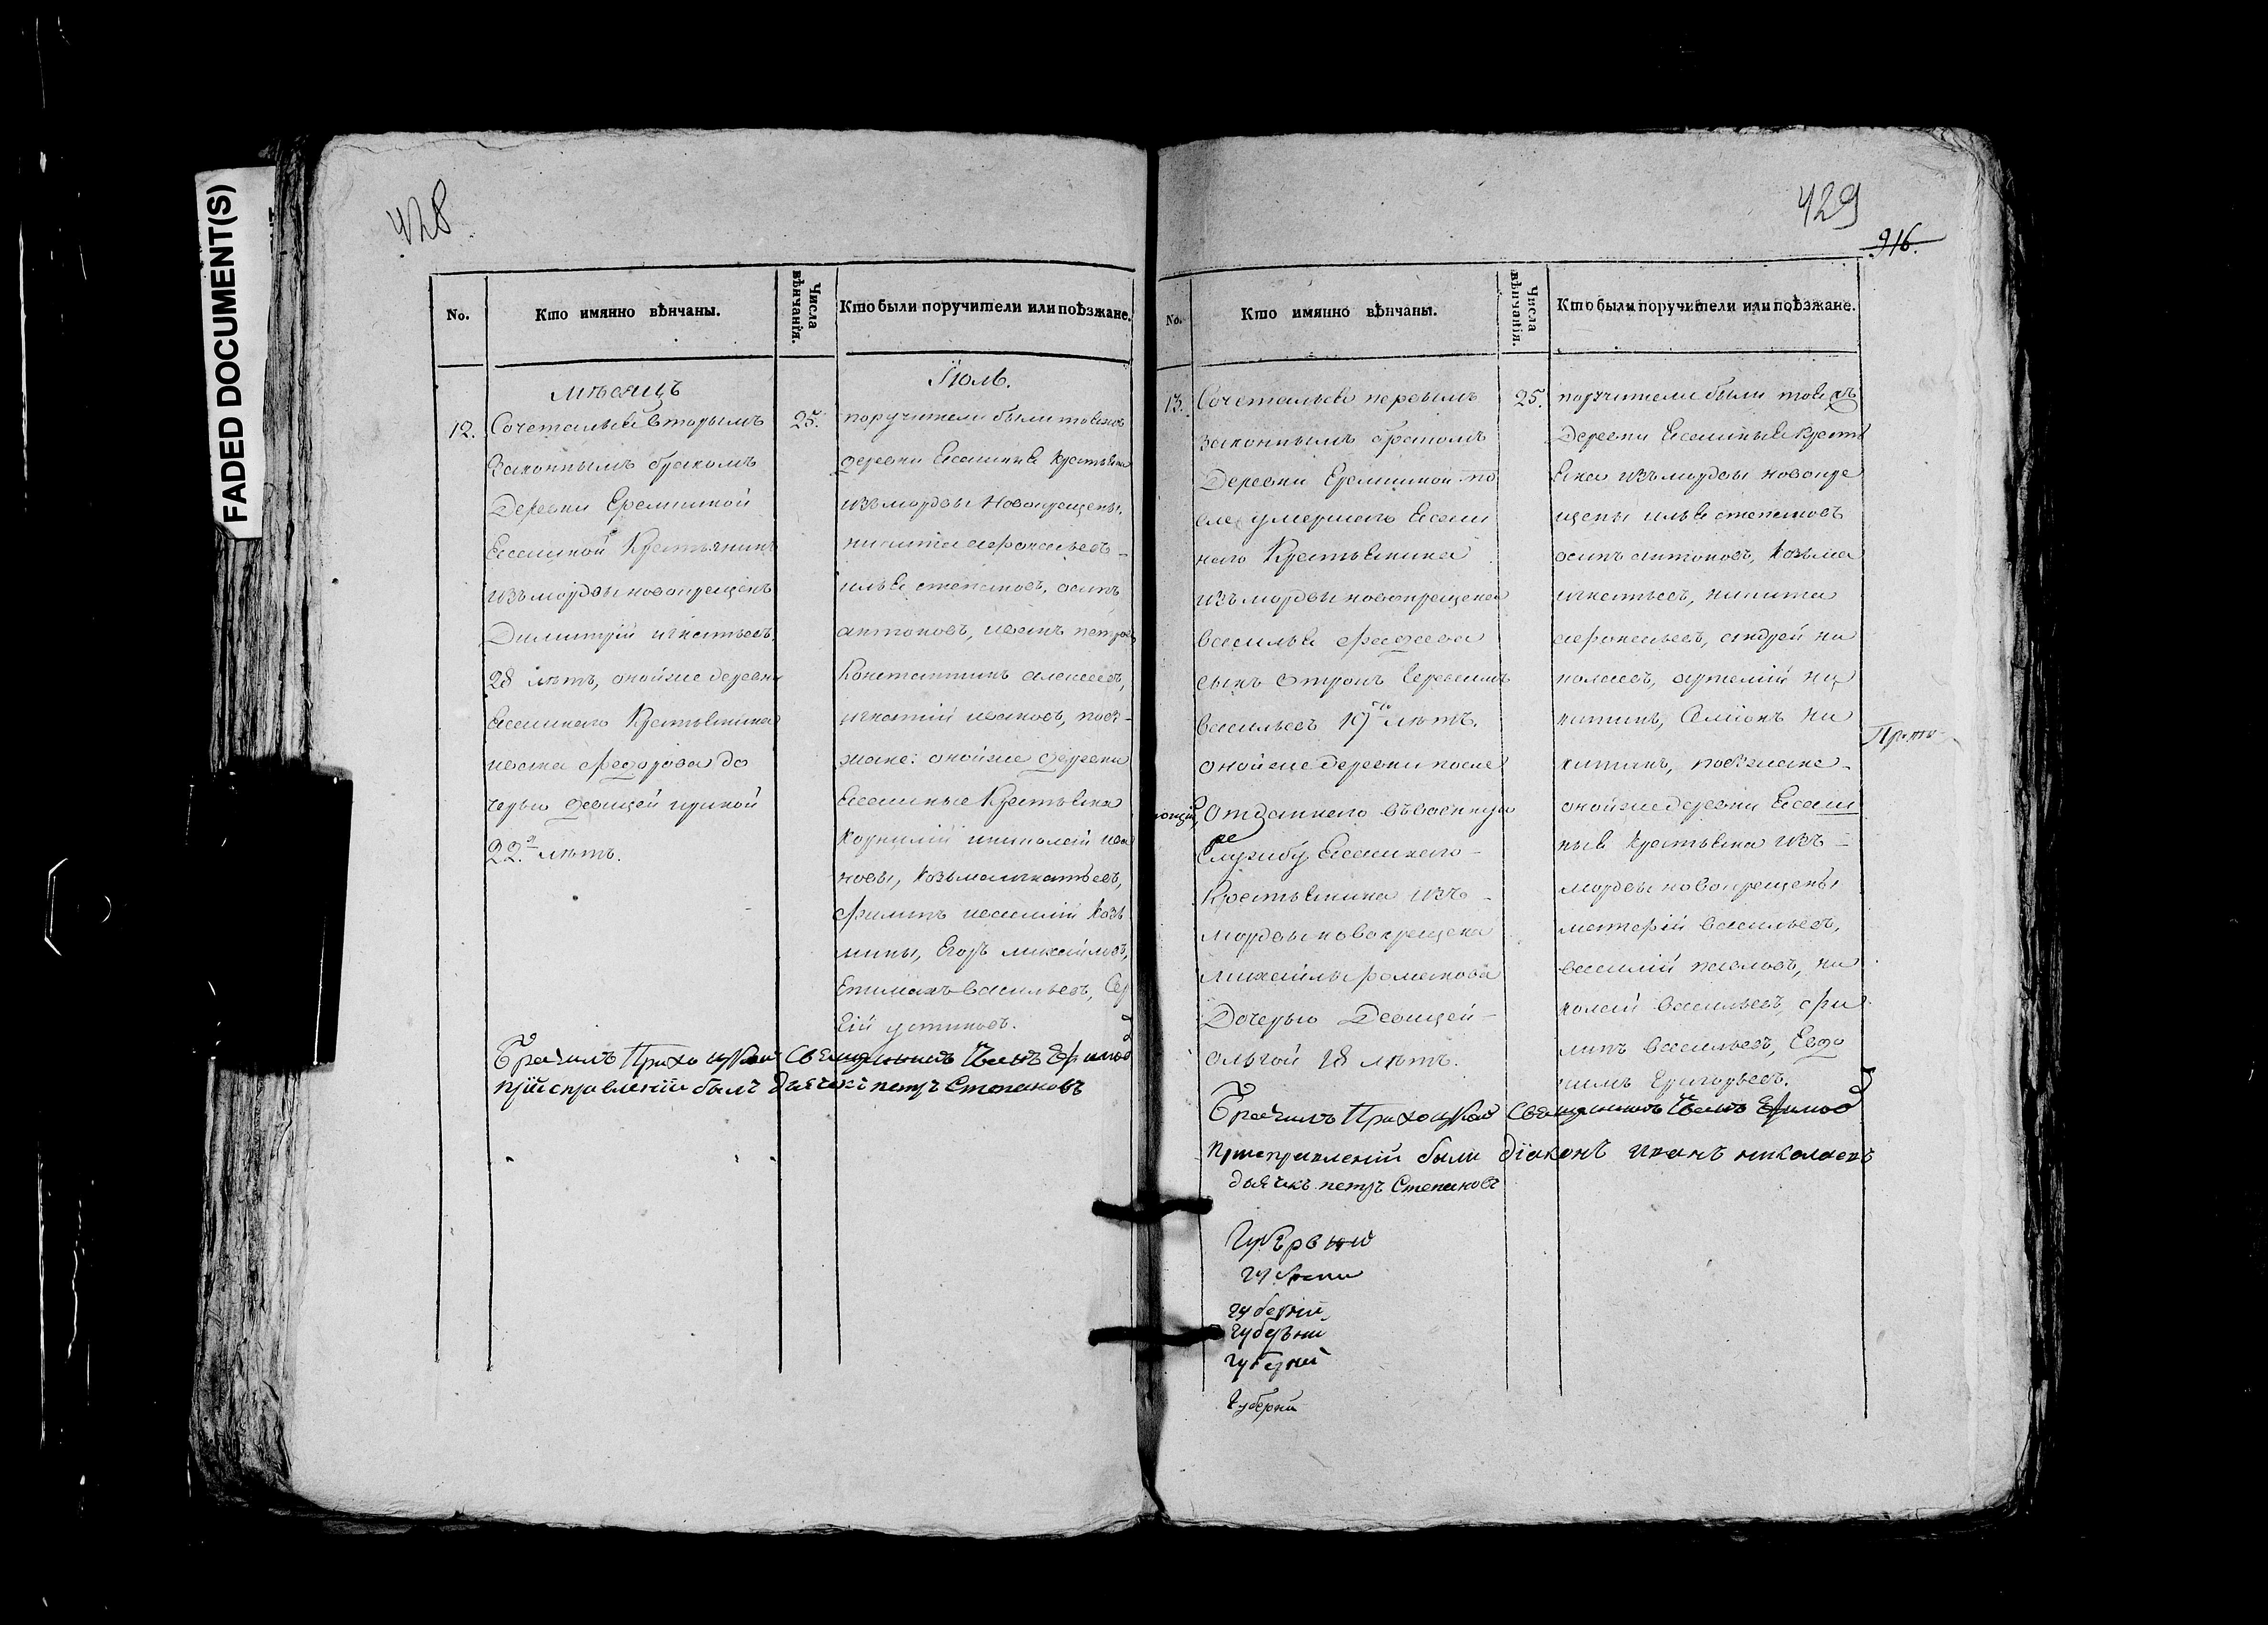 FADED DOCUMENT(S)
428
No.
Кто имянно вѣнчаны.
Числа вѣнчанія.
Кто были поручители или поѣзжане.
мѣсяцъ
Іюль.
12.
Сочеталься вторымъ
законнымъ бракомъ
Деревни Еремкиной
Ясашной Крестьянинъ
изъ мордвы новокрещенъ
Димитрій игнатьевъ
28 лѣтъ, оной же деревни
Ясашнаго Крестьянина
ивана федорова до
черью девицей
22 лѣтъ.
25.
поручители были тояжъ
деревни Ясашныя крестьяна
изъ мордвы Новокрещены,
никита афонасьевъ
илья степановъ, осипъ
антоновъ, иванъ петровъ
Константинъ алексеевъ,
игнатій ивановъ, поез-
жане: оной же деревни
Ясашные Крестьяна
Корнилій николай ива
новы, козьма игнатьевъ,
филипъ василій козь
мины, Егоръ михайловъ,
васильевъ, Сер
гій устиновъ.
Брачилъ Приходской Священникъ Иванъ Ефимовъ
при исправленіи былъ дьячекъ петръ Степановъ
429
916.
No.
Кто имянно вѣнчаны.
Числа вѣнчанія.
Кто были поручители или поѣзжане.
13.
Сочеталься первымъ
законнымъ бракомъ
Деревни Еремкиной по
сле умершаго Ясаш
наго Крестьянина
изъ мордвы новокрещена
василья фадеева
сынъ
васильевъ 19 лѣтъ.
оной же деревни после
отданнаго въ военную
службу Ясашнаго
Крестьянина изъ
мордвы новокрещена
михайлы романова
Дочерью Девицей
ольгой 18 лѣтъ.
25.
поручители были тояжъ
Деревни Ясашныя крестья
яна изъ мордвы новокре
щены илья степановъ
осипъ антоновъ, козьма
игнатьевъ, никита
афонасьевъ, андрей ни
колаевъ, артемій ни
китинъ, Семіонъ ни
китинъ, поезжане
оной же деревни Ясаш
ныя крестьяна изъ
мордвы новокрещены
матфій васильевъ,
василій павловъ, ни
колай васильевъ, фи
липъ васильевъ, Евдо
кимъ Григорьевъ.
Брачилъ Приходской Священникъ Иванъ Ефимовъ
при исправленіи были діаконъ иванъ николаевъ
дьячекъ петръ Степановъ
губерній
губерни
губерній
губерни